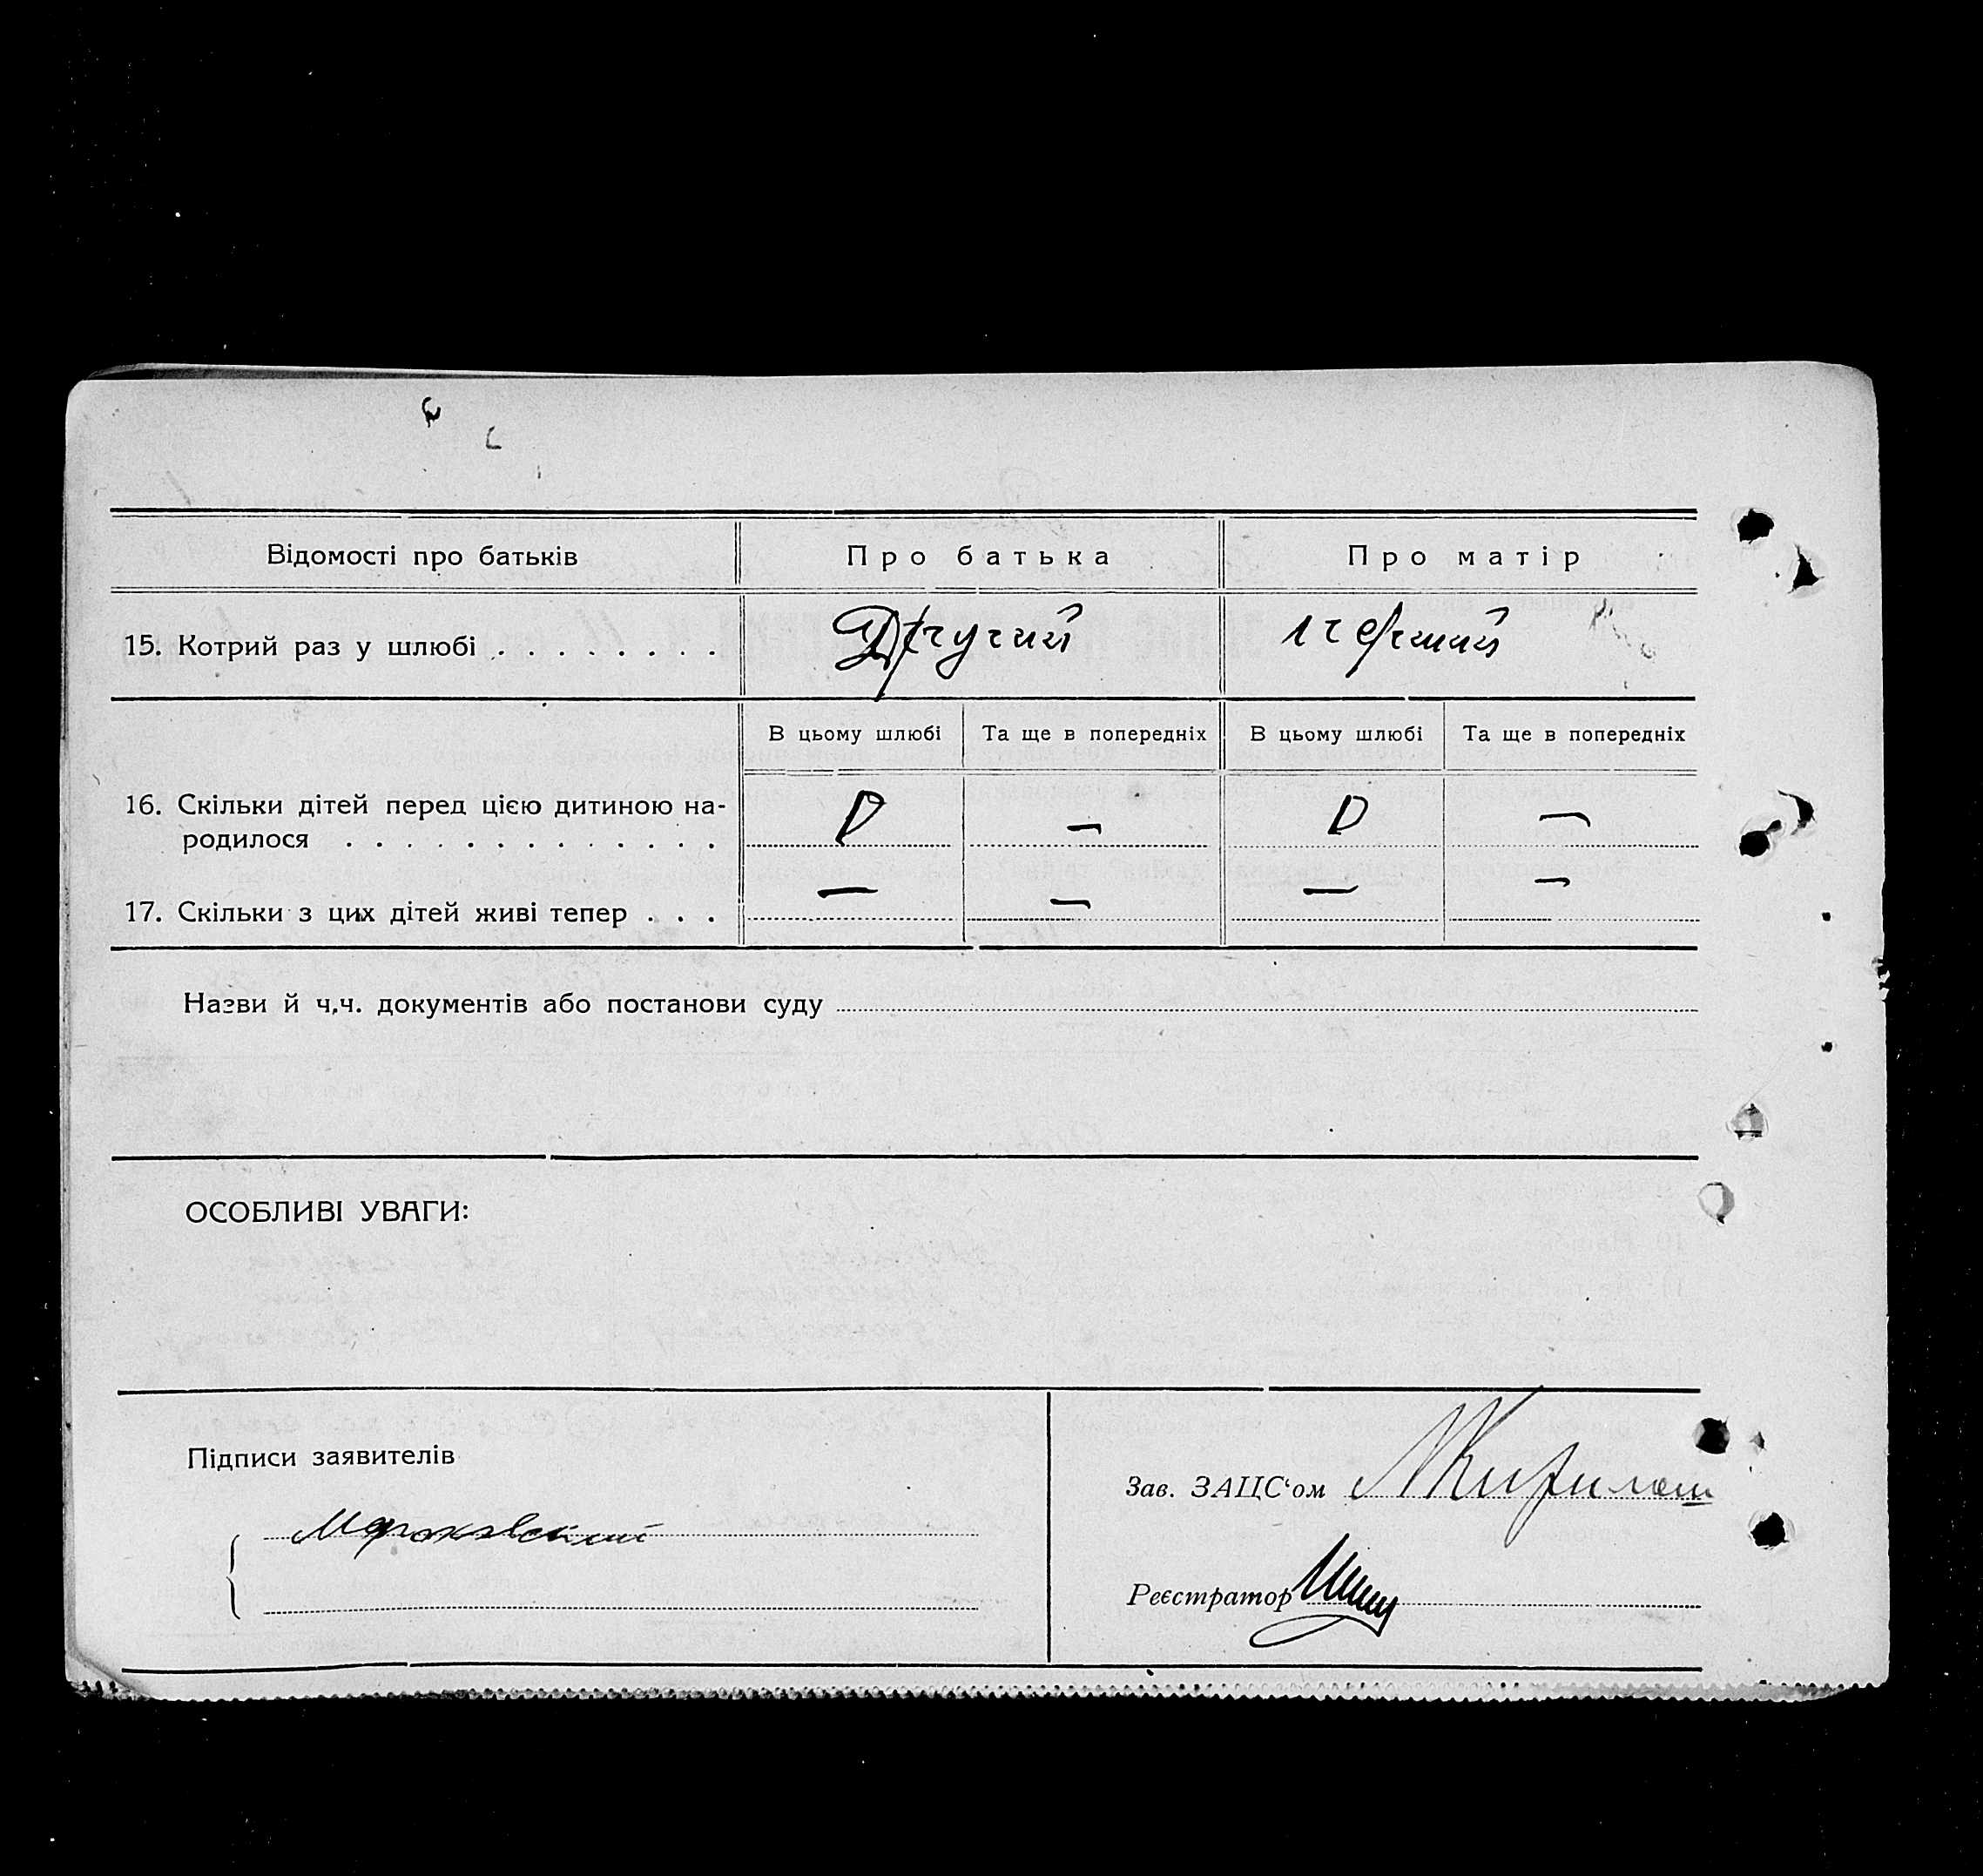 Відомості про батьків
Про батька
Про матір
15. Котрий раз у шлюбі . . . . . . . .
Другий
перший
В цьому шлюбі
Та ще в попередніх
В цьому шлюбі
Та ще в попередніх
16. Скільки дітей перед цією дитиною на-
родилося . . . . . . . . . . . . .
—
—
17. Скільки з цих дітей живі тепер . . .
—
—
—
—
Назви й ч.ч. документів або постанови суду
ОСОБЛИВІ УВАГИ:
Підписи заявителів
Зав. ЗАЦС‘ом
Реєстратор